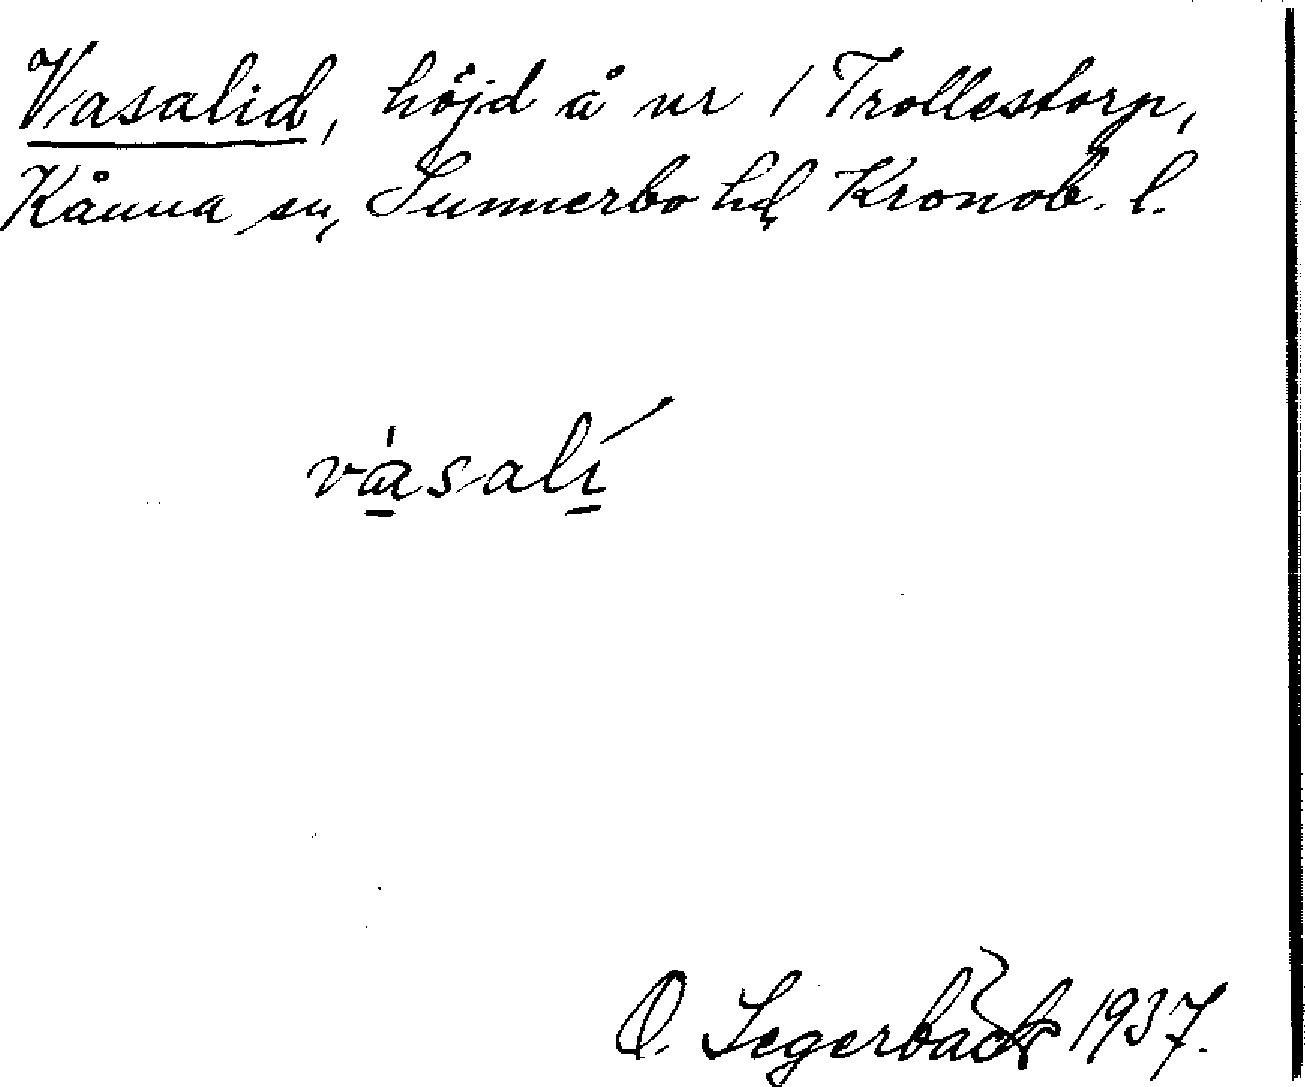 Vasalid, höjd å nr 1 Trollestorp,
Kånna sn, Sunnerbo hd, Kronob. l.
vàsalí
O. Segerbäck 1937.